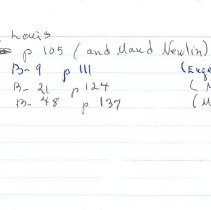 Louis
p 105 (and Maud Newlin)
B-9 p 111 (Euge
B-21 p 124 (M
B-48 p 137 (M